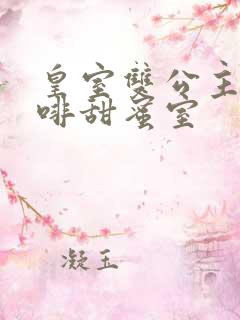 皇室雙公主
啡甜蜜室
凝玉